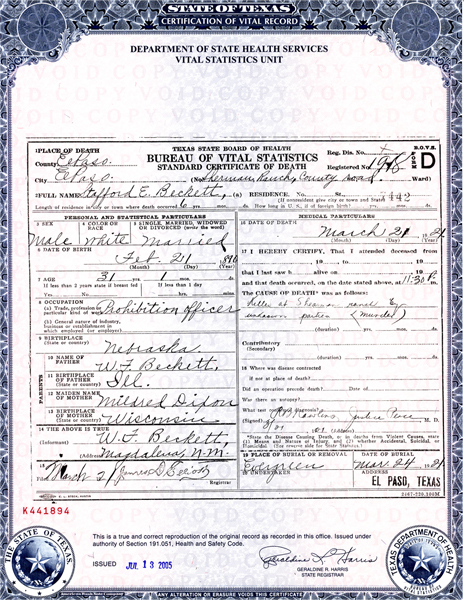 STATE OF TEXAS
CERTIFICATION OF VITAL RECORD
DEPARTMENT OF STATE HEALTH SERVICES
VITAL STATISTICS UNIT
1 PLACE OF DEATH
TEXAS STATE BOARD OF HEALTH
BUREAU OF VITAL STATISTICS
STANDARD CERTIFICATE OF DEATH
Reg. Dis. No.
B.O.V.S. FORM D
County El Paso
Registered No.
City El Paso (No. Ranch, County Road Ward)
2 FULL NAME Stafford E. Beckett, (a) RESIDENCE. No. St. 442
(If nonresident give city or town and State)
Length of residence in city or town where death occurred 6 yrs. mos. ds. How long in U. S., if of foreign birth? yrs. mos. ds.
PERSONAL AND STATISTICAL PARTICULARS
MEDICAL PARTICULARS
3 SEX
4 COLOR OR RACE
5 SINGLE, MARRIED, WIDOWED OR DIVORCED (write the word)
Male White Married
16 DATE OF DEATH
March 21 1921
(Month) (Day) (Year)
6 DATE OF BIRTH
Feb. 21 1890
(Month) (Day) (Year)
17 I HEREBY CERTIFY, That I attended deceased from
7 AGE
31 yrs. 1 mos. ds.
that I last saw h alive on 19
and that death occurred, on the date stated above, at 11:30 P.
If less than 2 years state if breast fed
If less than 1 day
Yes No hrs. min.
The CAUSE OF DEATH* was as follows:
killed at ranch by
unknown parties (Murder)
8 OCCUPATION
(a) Trade, profession or particular kind of work Prohibition Officer
(b) General nature of industry, business or establishment in which employed (or employer)
(duration) yrs. mos. ds.
Contributory
(Secondary)
(duration) yrs. mos. ds.
9 BIRTHPLACE
(State or country) Nebraska
PARENTS
10 NAME OF FATHER W. F. Beckett,
11 BIRTHPLACE OF FATHER (State or country) Ill.
12 MAIDEN NAME OF MOTHER Mildred Dixon
13 BIRTHPLACE OF MOTHER (State or country) Wisconsin
18 Where was disease contracted
if not at place of death?
Did an operation precede death? Date of
Was there an autopsy?
What test confirmed diagnosis?
(Signed) Justice Peace M. D.
14 THE ABOVE IS TRUE
(Informant) W. F. Beckett,
(Address) Magdalena, N.M.
*State the Disease Causing Death, or in deaths from Violent Causes, state (1) Means and Nature of Injury; and (2) whether Accidental, Suicidal, or Homicidal. (See reverse side for State Statutes.)
15 March 21
Registrar
19 PLACE OF BURIAL OR REMOVAL
DATE
Evergreen Mar. 24 1921
20 UNDERTAKER
ADDRESS
EL PASO, TEXAS
2467-720-100M
K441894
This is a true and correct reproduction of the original record as recorded in this office. Issued under
authority of Section 191.051, Health and Safety Code.
ISSUED JUL 13 2005
Geraldine R. Harris
GERALDINE R. HARRIS
STATE REGISTRAR
THE STATE OF TEXAS
TEXAS DEPARTMENT OF HEALTH
ANY ALTERATION OR ERASURE VOIDS THIS CERTIFICATE
VOID COPY